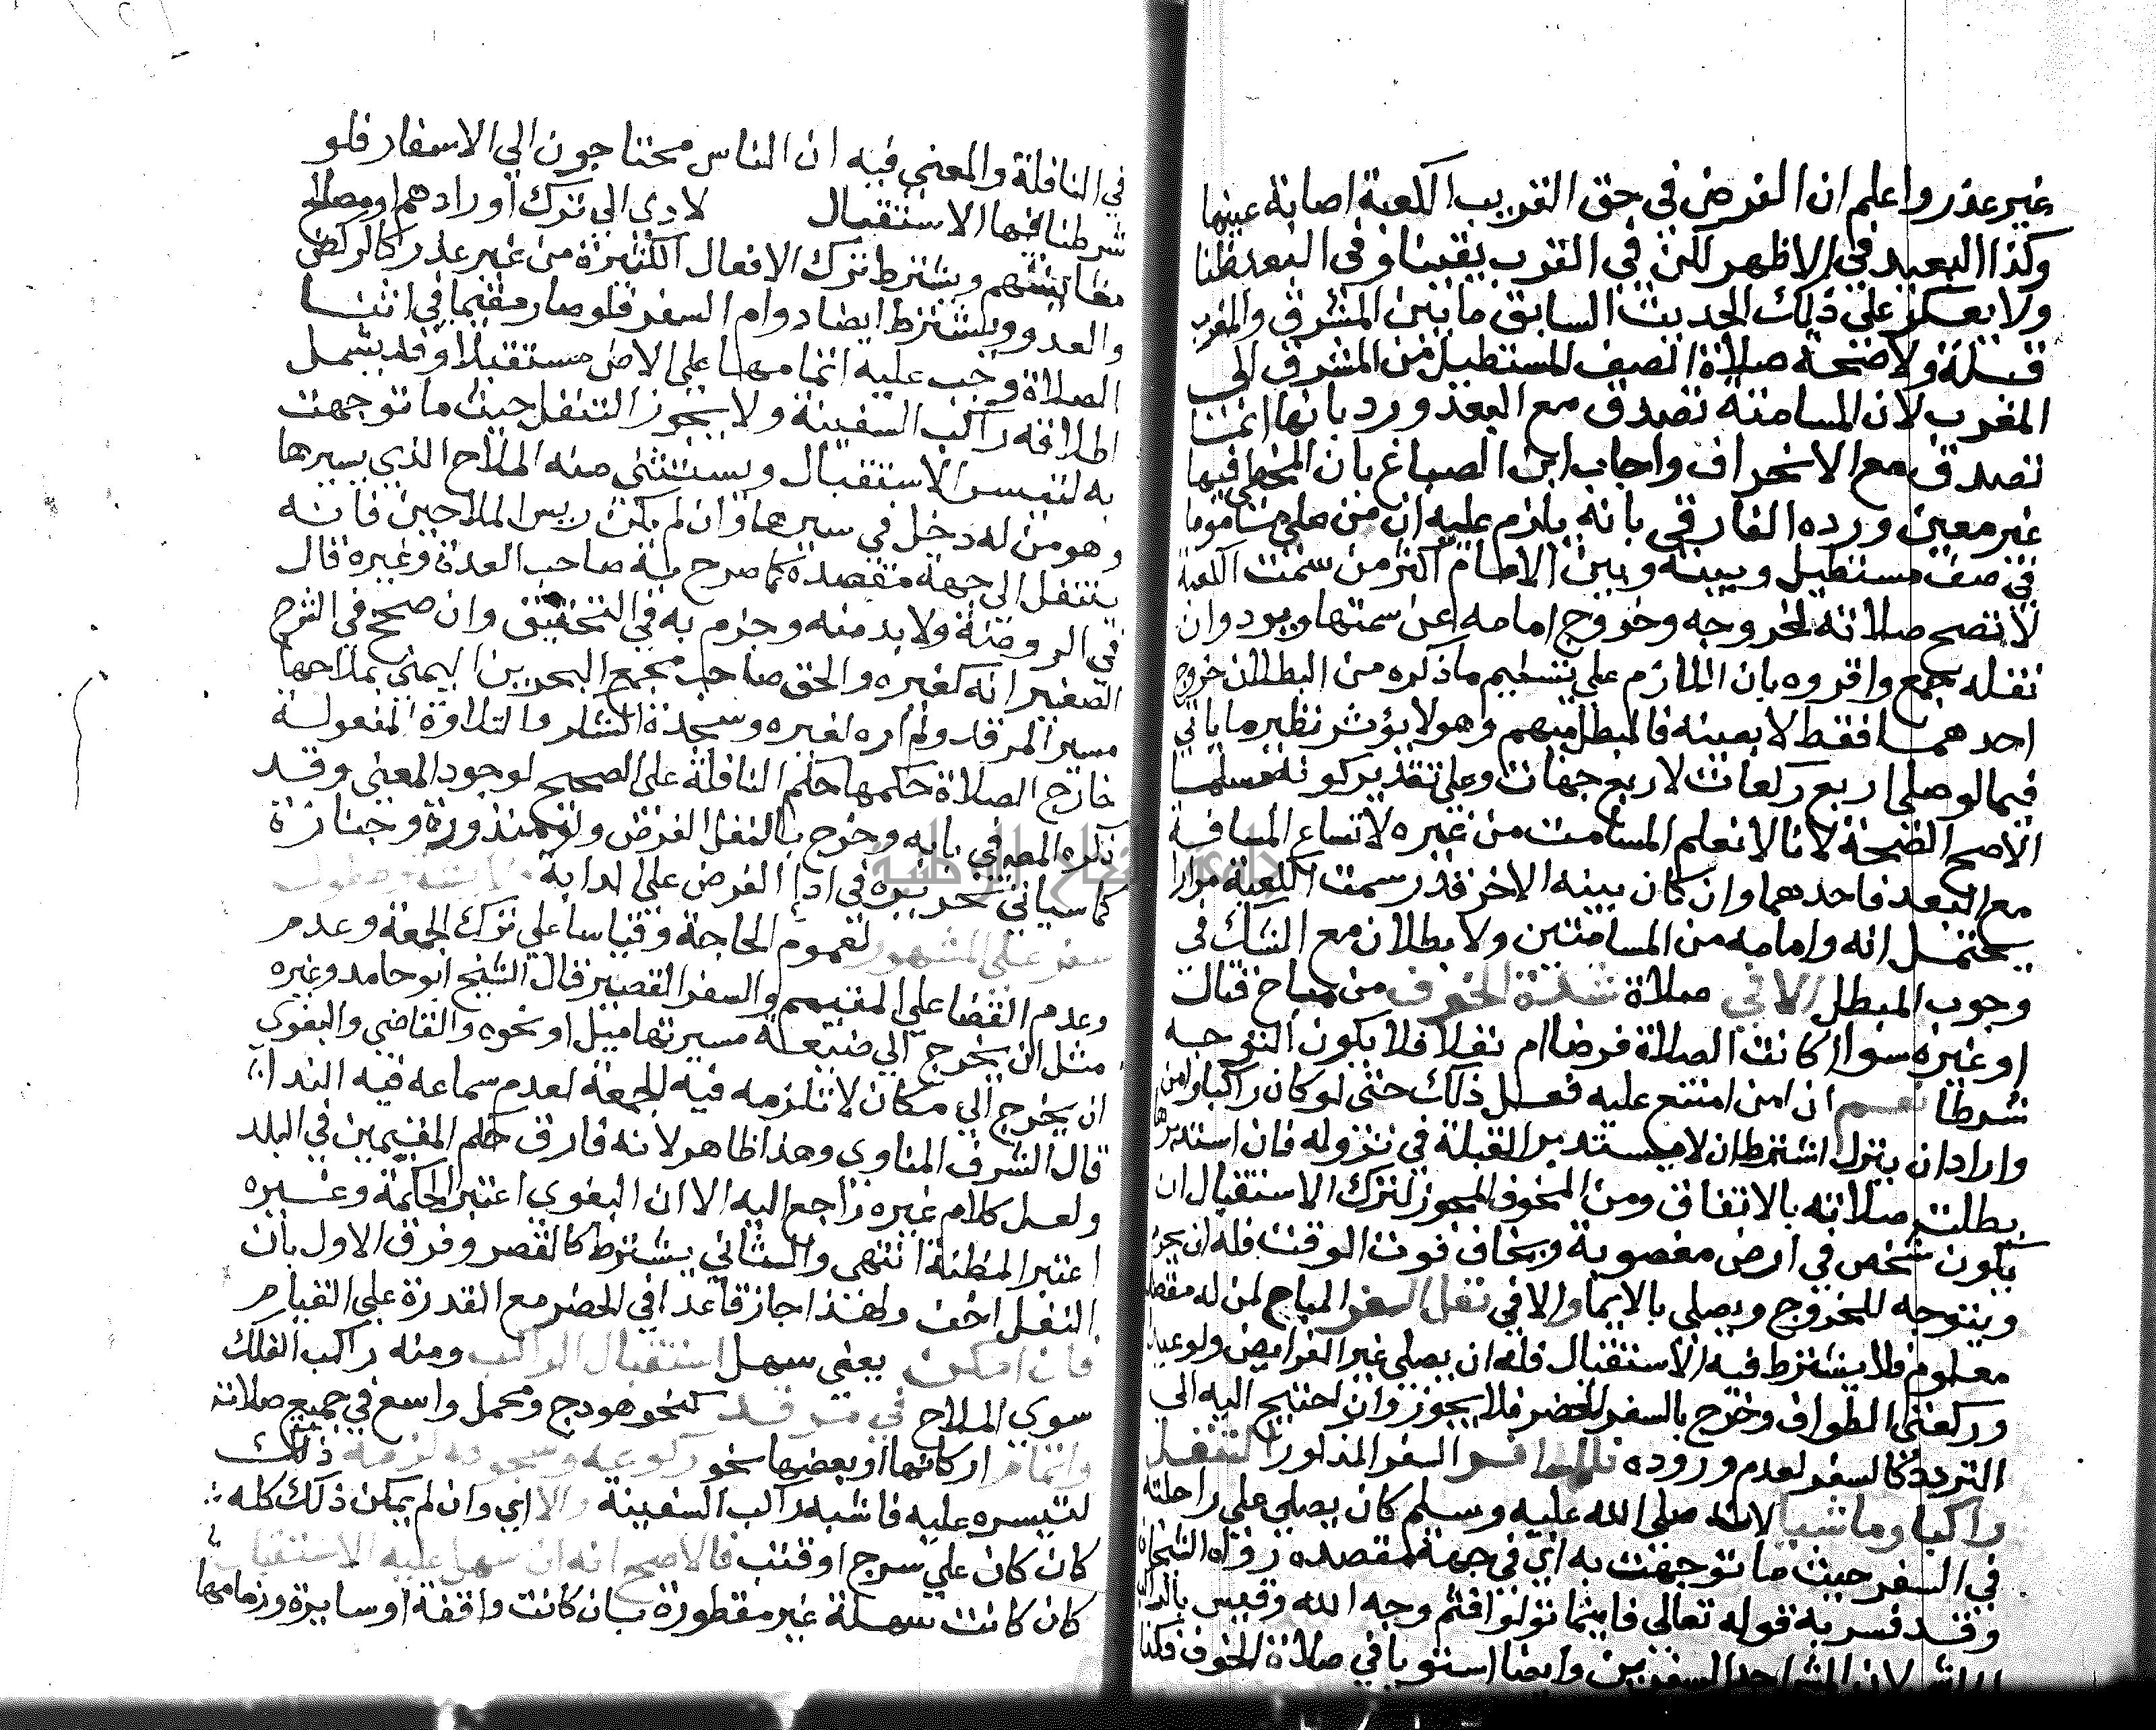 غير عذر واعلم ان الفرض في حق القريب الكعبة اصابة عينها
وكذا البعيد في الاظهر لكن في القرب يقينا وفي البعد ظنا
ولا يعكر على ذلك الحديث السابق ما بين المشرق والمغرب
قبلة ولا صحة صلاة الصف المستطيل من المشرق الى
المغرب لان المسامتة تصدق مع البعد ورد بانها انما
تصدق مع الانحراف واجاب ابن الصباغ بان المخطي فيها
غير معين ورده الفارقي بانه يلزم عليه ان من صلى مأموما
في صف مستطيل وبينه وبين الامام اكثر من سمت الكعبة
لا تصح صلاته لخروجه وخروج امامه عن سمتها ويرد وان
نقله جمع واقروه بان اللازم على تسليم ما ذكره من البطلان خروج
احدهما فقط لا بعينه فالمبطل منهم وهو لا يؤثر نظير ما ياتي
فيما لو صلى اربع ركعات لاربع جهات وعلى تقدير كونه مسلما
الاصح الصحة لانا لا نعلم المسامت من غيره لاتساع المسافة
مع البعد فاحدهما وان كان بينه الاخر قدر سمت الكعبة مرارا
يحتمل انه وامامه من المسامتين ولا بطلان مع الشك في
وجوب المبطل الا في صلاة شدة الخوف من مباح قتال
او غيره سواا كانت الصلاة فرضا ام نفلا فلا يكون التوجه
شرطا نعم ان امن امتنع عليه فعل ذلك حتى لو كان راكبا وامن
واراد ان ينزل اشترط ان لا يستدبر القبلة في نزوله فان استدبرها
بطلت صلاته بالاتفاق ومن الخوف المجوز لترك الاستقبال ان
يكون شخص في ارض مغصوبة ويخاف فوت الوقت فله ان يحرم
ويتوجه للخروج ويصلي بالايما والا في نفل السفر المباح لمن له مقصد
معلوم فلا يشترط فيه الاستقبال فله ان يصلي غير الفرايض ولو عيدا
وركعتي الطواف وخرج بالسفر الحضر فلا يجوز وان احتيج اليه الى
التردد كالسفر لعدم وروده فللمسافر السفر المذكور التنفل
راكبا وماشيا لانه صلى الله عليه وسلم كان يصلي على راحلته
في السفر حيث ما توجهت به اي في جهة مقصده رواه الشيخان
وقد فسر به قوله تعالى فاينما تولوا فثم وجه الله وقيس بالراكب
الماشي لان المشي احد السفرين وايضا استويا في صلاة الخوف فكذا
في النافلة والمعنى فيه ان الناس محتاجون الي الاسفار فلو
شرطنا فيها الاستقبال لادى الي ترك اورادهم او مصالح
معايشهم ويشترط ترك الافعال الكثيرة من غير عذر كالركض
والعدو ويشترط ايضا دوام السفر فلو صار مقيما في اثنا
الصلاة وجب عليه اتمامها على الارض مستقبلا وقد يشمل
اطلاقه راكب السفينة ولا يجوز التنفل حيث ما توجهت
به لتيسر الاستقبال ويستثنى منه الملاح الذي يسيرها
وهو من له دخل في سيرها وان لم يكن ريس الملاحين فانه
يتنفل الى جهة مقصده كما صرح به صاحب العدة وغيره قال
في الروضة ولا بد منه وجزم به في التحقيق وان صحح في الشرح
الصغير انه كغيره والحق صاحب مجمع البحرين اليمني بملاحها
مسير المرقد ولم اره لغيره وسجدة الشكر والتلاوة المفعولة
خارج الصلاة حكمها حكم النافلة على الصحيح لوجود المعنى وقد
ذكره المصر في بابه وخرج بالنفل الفرض ولو منذورة وجنازة
كما سياتي تحريره في ادا الفرض على الدابة ولا يشترط طول
سفر على المشهور لعموم الحاجة وقياسا علي ترك الجمعة وعدم
وعدم القضا علي المتيمم والسفر القصير قال الشيخ ابو حامد وغيره
مثل ان يخرج الي ضيعة مسيرتها ميل او نحوه والقاضي والبغوي
ان يخرج الي مكان لا تلزمه فيه الجمعة لعدم سماعه فيه الندا
قال الشرف المناوي وهذا ظاهر لانه فارق حكم المقيمين في البلد
ولعل كلام غيره راجع اليه الا ان البغوي اعتبر الحكمة وغيره
اعتبر المظنة انتهى والثاني يشترط كالقصر وفرق الاول بان
النفل اخف ولهذا جاز قاعدا في الحضر مع القدرة علي القيام
فان امكن يعني سهل استقبال الراكب ومنه راكب الفلك
سوى الملاح في مرقد كنحو هودج ومحمل واسع في جميع صلاته
واتمام اركانها او بعضها نحو ركوعه وسجوده لزمه ذلك
لتيسره عليه فاشبه راكب السفينة والا اي وان لم يمكن ذلك كله
كان كان علي سرج او قتب فالاصح انه ان سهل عليه الاستقبال
كان كانت سهلة غير مقطورة بان كانت واقفة او سايرة وزمامها